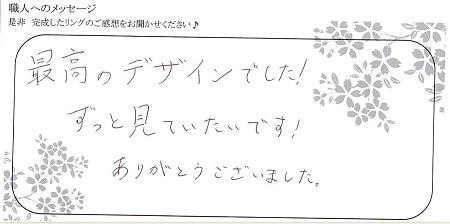 職人へのメッセージ
是非 完成したリングのご感想をお聞かせください♪
最高のデザインでした!
ずっと見ていたいです!
ありがとうございました。